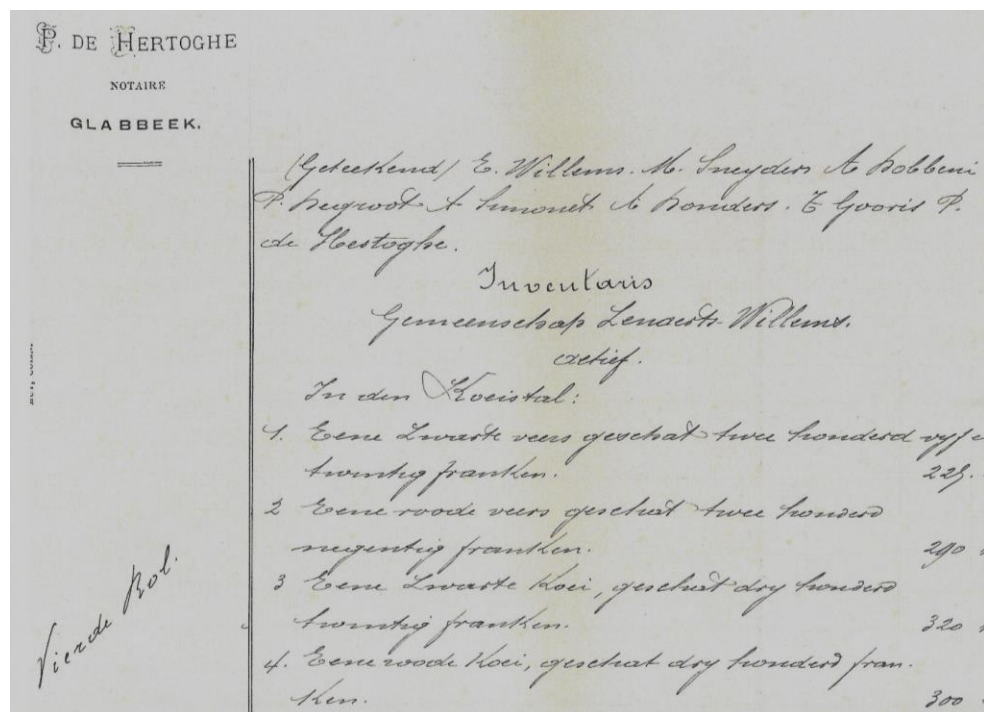 P. DE HERTOGHE
NOTAIRE
GLABBEEK.
(Geteekend) E. Willems. M. Sneyders A
P. A Simonet A Honders. E Gooris P.
de Hertoghe.
Inventaris
Gemeenschap Lenaerts-Willems.
actief.
In den Koeistal:
1. Eene Zwarte veers geschat twee honderd vyf
twintig franken. 225.
2 Eene roode veers geschat twee honderd
negentig franken. 290
3 Eene Zwarte Koei, geschat dry honderd
twintig franken. 320
4. Eene roode Koei, geschat dry honderd fran-
ken. 300
Vierde Rol.